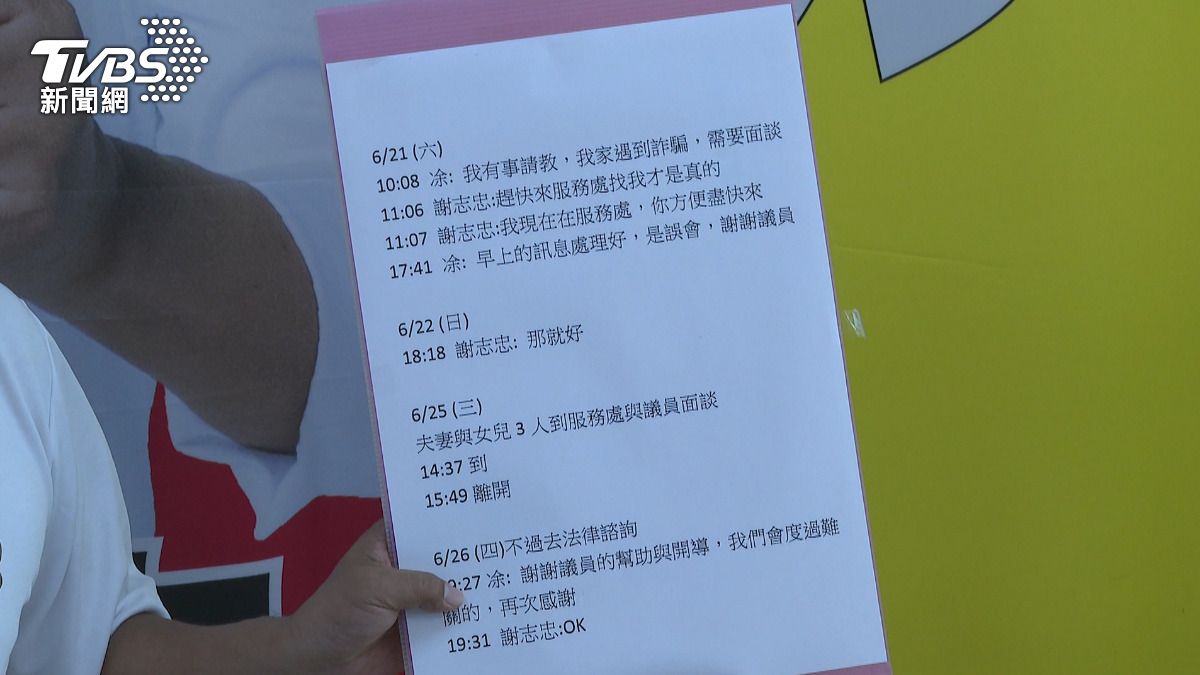 TVBS
新聞網
6/21 (六)
10:08 凃: 我有事請教，我家遇到詐騙，需要面談
11:06 謝志忠:趕快來服務處找我才是真的
11:07 謝志忠:我現在在服務處，你方便盡快來
17:41 凃: 早上的訊息處理好，是誤會，謝謝議員
6/22 (日)
18:18 謝志忠: 那就好
6/25 (三)
夫妻與女兒 3 人到服務處與議員面談
14:37 到
15:49 離開
6/26 (四)不過去法律諮詢
:27 凃: 謝謝議員的幫助與開導，我們會度過難
關的，再次感謝
19:31 謝志忠:OK